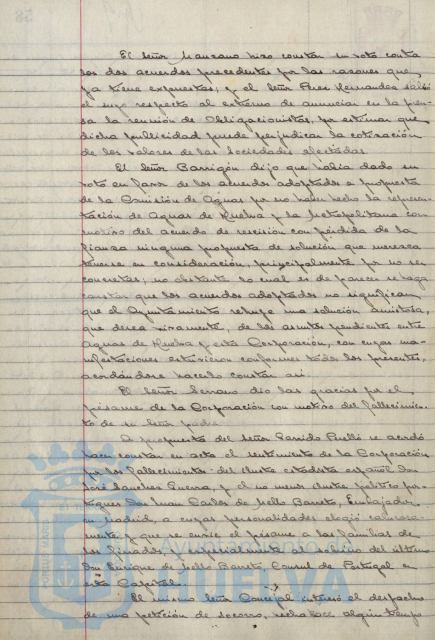 El Señor Manzano hizo constar su voto contra
los dos acuerdos precedentes por las razones que
ya tiene expuestas; y el Señor Perez Hernandez salvó
el suyo respecto al extremo de anunciar en la pren-
sa la reunión de Obligacionistas, por estimar que
dicha publicidad puede perjudicar la cotización
de los valores de las Sociedades afectadas
El Señor Barrigón dijo que había dado su
voto en favor de los acuerdos adoptados a propuesta
de la Comisión de Aguas por no haber hecho la represen-
tación de Aguas de Huelva y la Metropolitana con
motivo del acuerdo de rescisión con pérdida de la
fianza ninguna propuesta de solución que merezca
tenerse en consideración, principalmente por no ser
concretas; no obstante lo cual es de parecer se haga
constar que los acuerdos adoptados no significan
que el Ayuntamiento rehuye una solución amistosa,
que desea vivamente, de los asuntos pendientes entre
Aguas de Huelva y esta Corporación, con cuyas ma-
nifestaciones estuvieron conformes todos los presentes,
acordándose hacerlo constar así.
El Señor Serrano dió las gracias por el
pésame de la Corporación con motivo del fallecimien-
to de su Señor padre
A propuesta del Señor Garrido Perelló se acordó
hacer constar en acta el sentimiento de la Corporación
por los fallecimientos del ilustre estadista español Don
José Sanchez Guerra, y el no menos ilustre político por-
tugues Don Juan Carlos de Mello Barreto, Embajador
en Madrid, a cuyas personalidades elogió calurosa-
mente y que se envíe el pésame a las familias de
los finados, y especialmente al sobrino del último
Don Enrique de Mello Barreto, Consul de Portugal en
esta Capital.
El mismo Señor Concejal interesó el despacho
de una petición de socorro, hecha hace algún tiempo
HUELVA